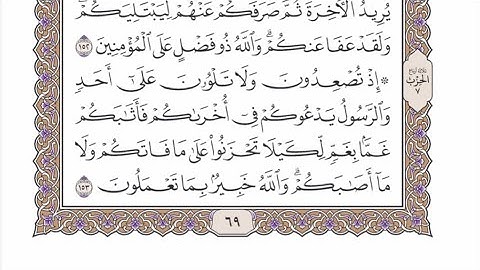 يُرِيدُ ٱلْأَخِرَةَ ثُمَّ صَرَفَكُمْ عَنْهُمْ لِيَبْتَلِيَكُمْ
وَلَقَدْ عَفَا عَنكُمْ ۗ وَٱللَّهُ ذُو فَضْلٍ عَلَى ٱلْمُؤْمِنِينَ ١٥٢
۞ إِذْ تُصْعِدُونَ وَلَا تَلْوُۥنَ عَلَىٰٓ أَحَدٍ
وَٱلرَّسُولُ يَدْعُوكُمْ فِىٓ أُخْرَىٰكُمْ فَأَثَٰبَكُمْ
غَمًّۢا بِغَمٍّ لِّكَيْلَا تَحْزَنُوا۟ عَلَىٰ مَا فَاتَكُمْ وَلَا
مَآ أَصَٰبَكُمْ ۗ وَٱللَّهُ خَبِيرٌۢ بِمَا تَعْمَلُونَ ١٥٣
الحزب
٧
٦٩